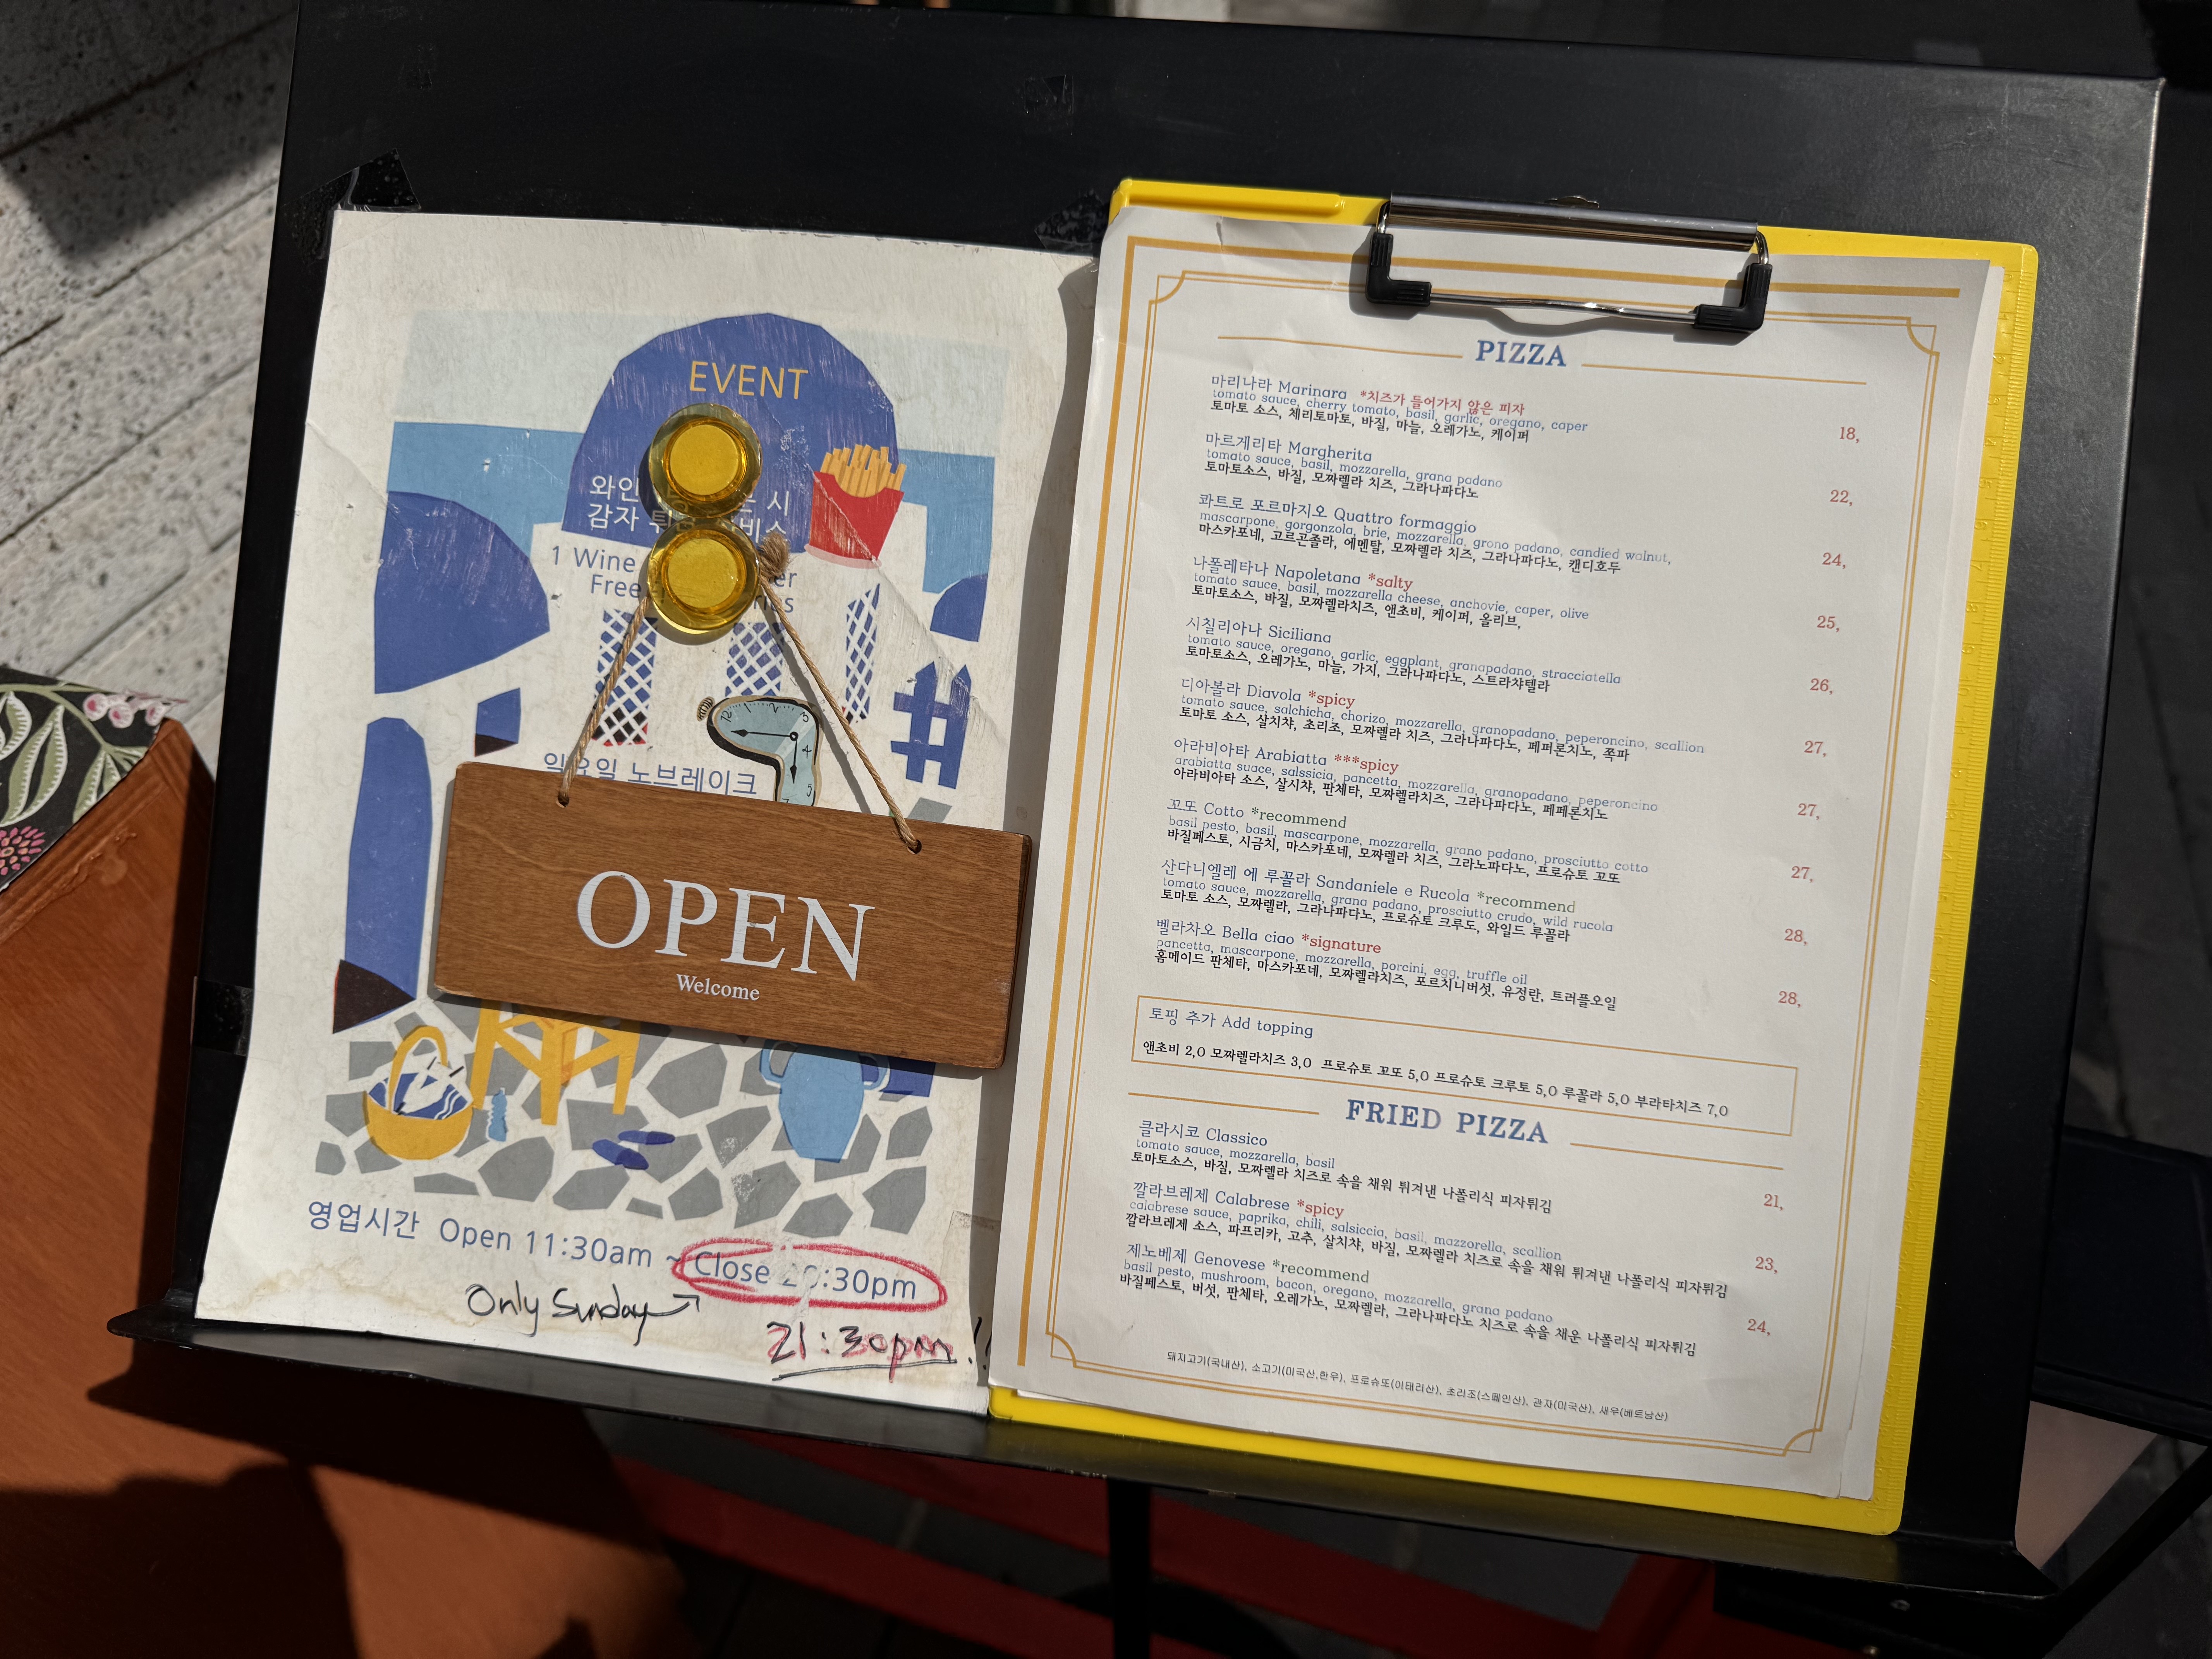 EVENT
와인 시
감자
1 Wine
Free
일요일 노브레이크
OPEN
Welcome
영업시간 Open 11:30am ~ Close :30pm
Only Sunday
21:30pm!!
PIZZA
마리나라 Marinara *치즈가 들어가지 않은 피자
tomato sauce, cherry tomato, basil, garlic, oregano, caper
토마토 소스, 체리토마토, 바질, 마늘, 오레가노, 케이퍼
18,
마르게리타 Margherita
tomato sauce, basil, mozzarella, grana padano
토마토소스, 바질, 모짜렐라 치즈, 그라나파다노
22,
콰트로 포르마지오 Quattro formaggio
mascarpone, gorgonzola, brie, mozzarella, grono padano, candied walnut,
마스카포네, 고르곤졸라, 에멘탈, 모짜렐라 치즈, 그라나파다노, 캔디호두
24,
나폴레타나 Napoletana *salty
tomato sauce, basil, mozzarella cheese, anchovie, caper, olive
토마토소스, 바질, 모짜렐라치즈, 앤초비, 케이퍼, 올리브,
25,
시칠리아나 Siciliana
tomato sauce, oregano, garlic, eggplant, granapadano, stracciatella
토마토소스, 오레가노, 마늘, 가지, 그라나파다노, 스트라챠텔라
26,
디아볼라 Diavola *spicy
tomato sauce, salchicha, chorizo, mozzarella, granopadano, peperoncino, scallion
토마토 소스, 살치챠, 초리조, 모짜렐라 치즈, 그라나파다노, 페퍼론치노, 쪽파
27,
아라비아타 Arabiatta ***spicy
arabiatta suace, salssicia, pancetta, mozzarella, granopadano, peperoncino
아라비아타 소스, 살시챠, 판체타, 모짜렐라치즈, 그라나파다노, 페페론치노
27,
꼬또 Cotto *recommend
basil pesto, basil, mascarpone, mozzarella, grano padano, prosciutto cotto
바질페스토, 시금치, 마스카포네, 모짜렐라 치즈, 그라노파다노, 프로슈토 꼬또
27,
산다니엘레 에 루꼴라 Sandaniele e Rucola *recommend
tomato sauce, mozzarella, grana padano, prosciutto crudo, wild rucola
토마토 소스, 모짜렐라, 그라나파다노, 프로슈토 크루도, 와일드 루꼴라
28,
벨라차오 Bella ciao *signature
pancetta, mascarpone, mozzarella, porcini, egg, truffle oil
홈메이드 판체타, 마스카포네, 모짜렐라치즈, 포르치니버섯, 유정란, 트러플오일
28,
토핑 추가 Add topping
앤초비 2,0 모짜렐라치즈 3,0 프로슈토 꼬또 5,0 프로슈토 크루토 5,0 루꼴라 5,0 부라타치즈 7,0
FRIED PIZZA
클라시코 Classico
tomato sauce, mozzarella, basil
토마토소스, 바질, 모짜렐라 치즈로 속을 채워 튀겨낸 나폴리식 피자튀김
21,
깔라브레제 Calabrese *spicy
calabrese sauce, paprika, chili, salsiccia, basil, mazzorella, scallion
깔라브레제 소스, 파프리카, 고추, 살치챠, 바질, 모짜렐라 치즈로 속을 채워 튀겨낸 나폴리식 피자튀김
23,
제노베제 Genovese *recommend
basil pesto, mushroom, bacon, oregano, mozzarella, grana padano
바질페스토, 버섯, 판체타, 오레가노, 모짜렐라, 그라나파다노 치즈로 속을 채운 나폴리식 피자튀김
24,
돼지고기(국내산), 소고기(미국산,한우), 프로슈또(이태리산), 초리조(스페인산), 관자(미국산), 새우(베트남산)